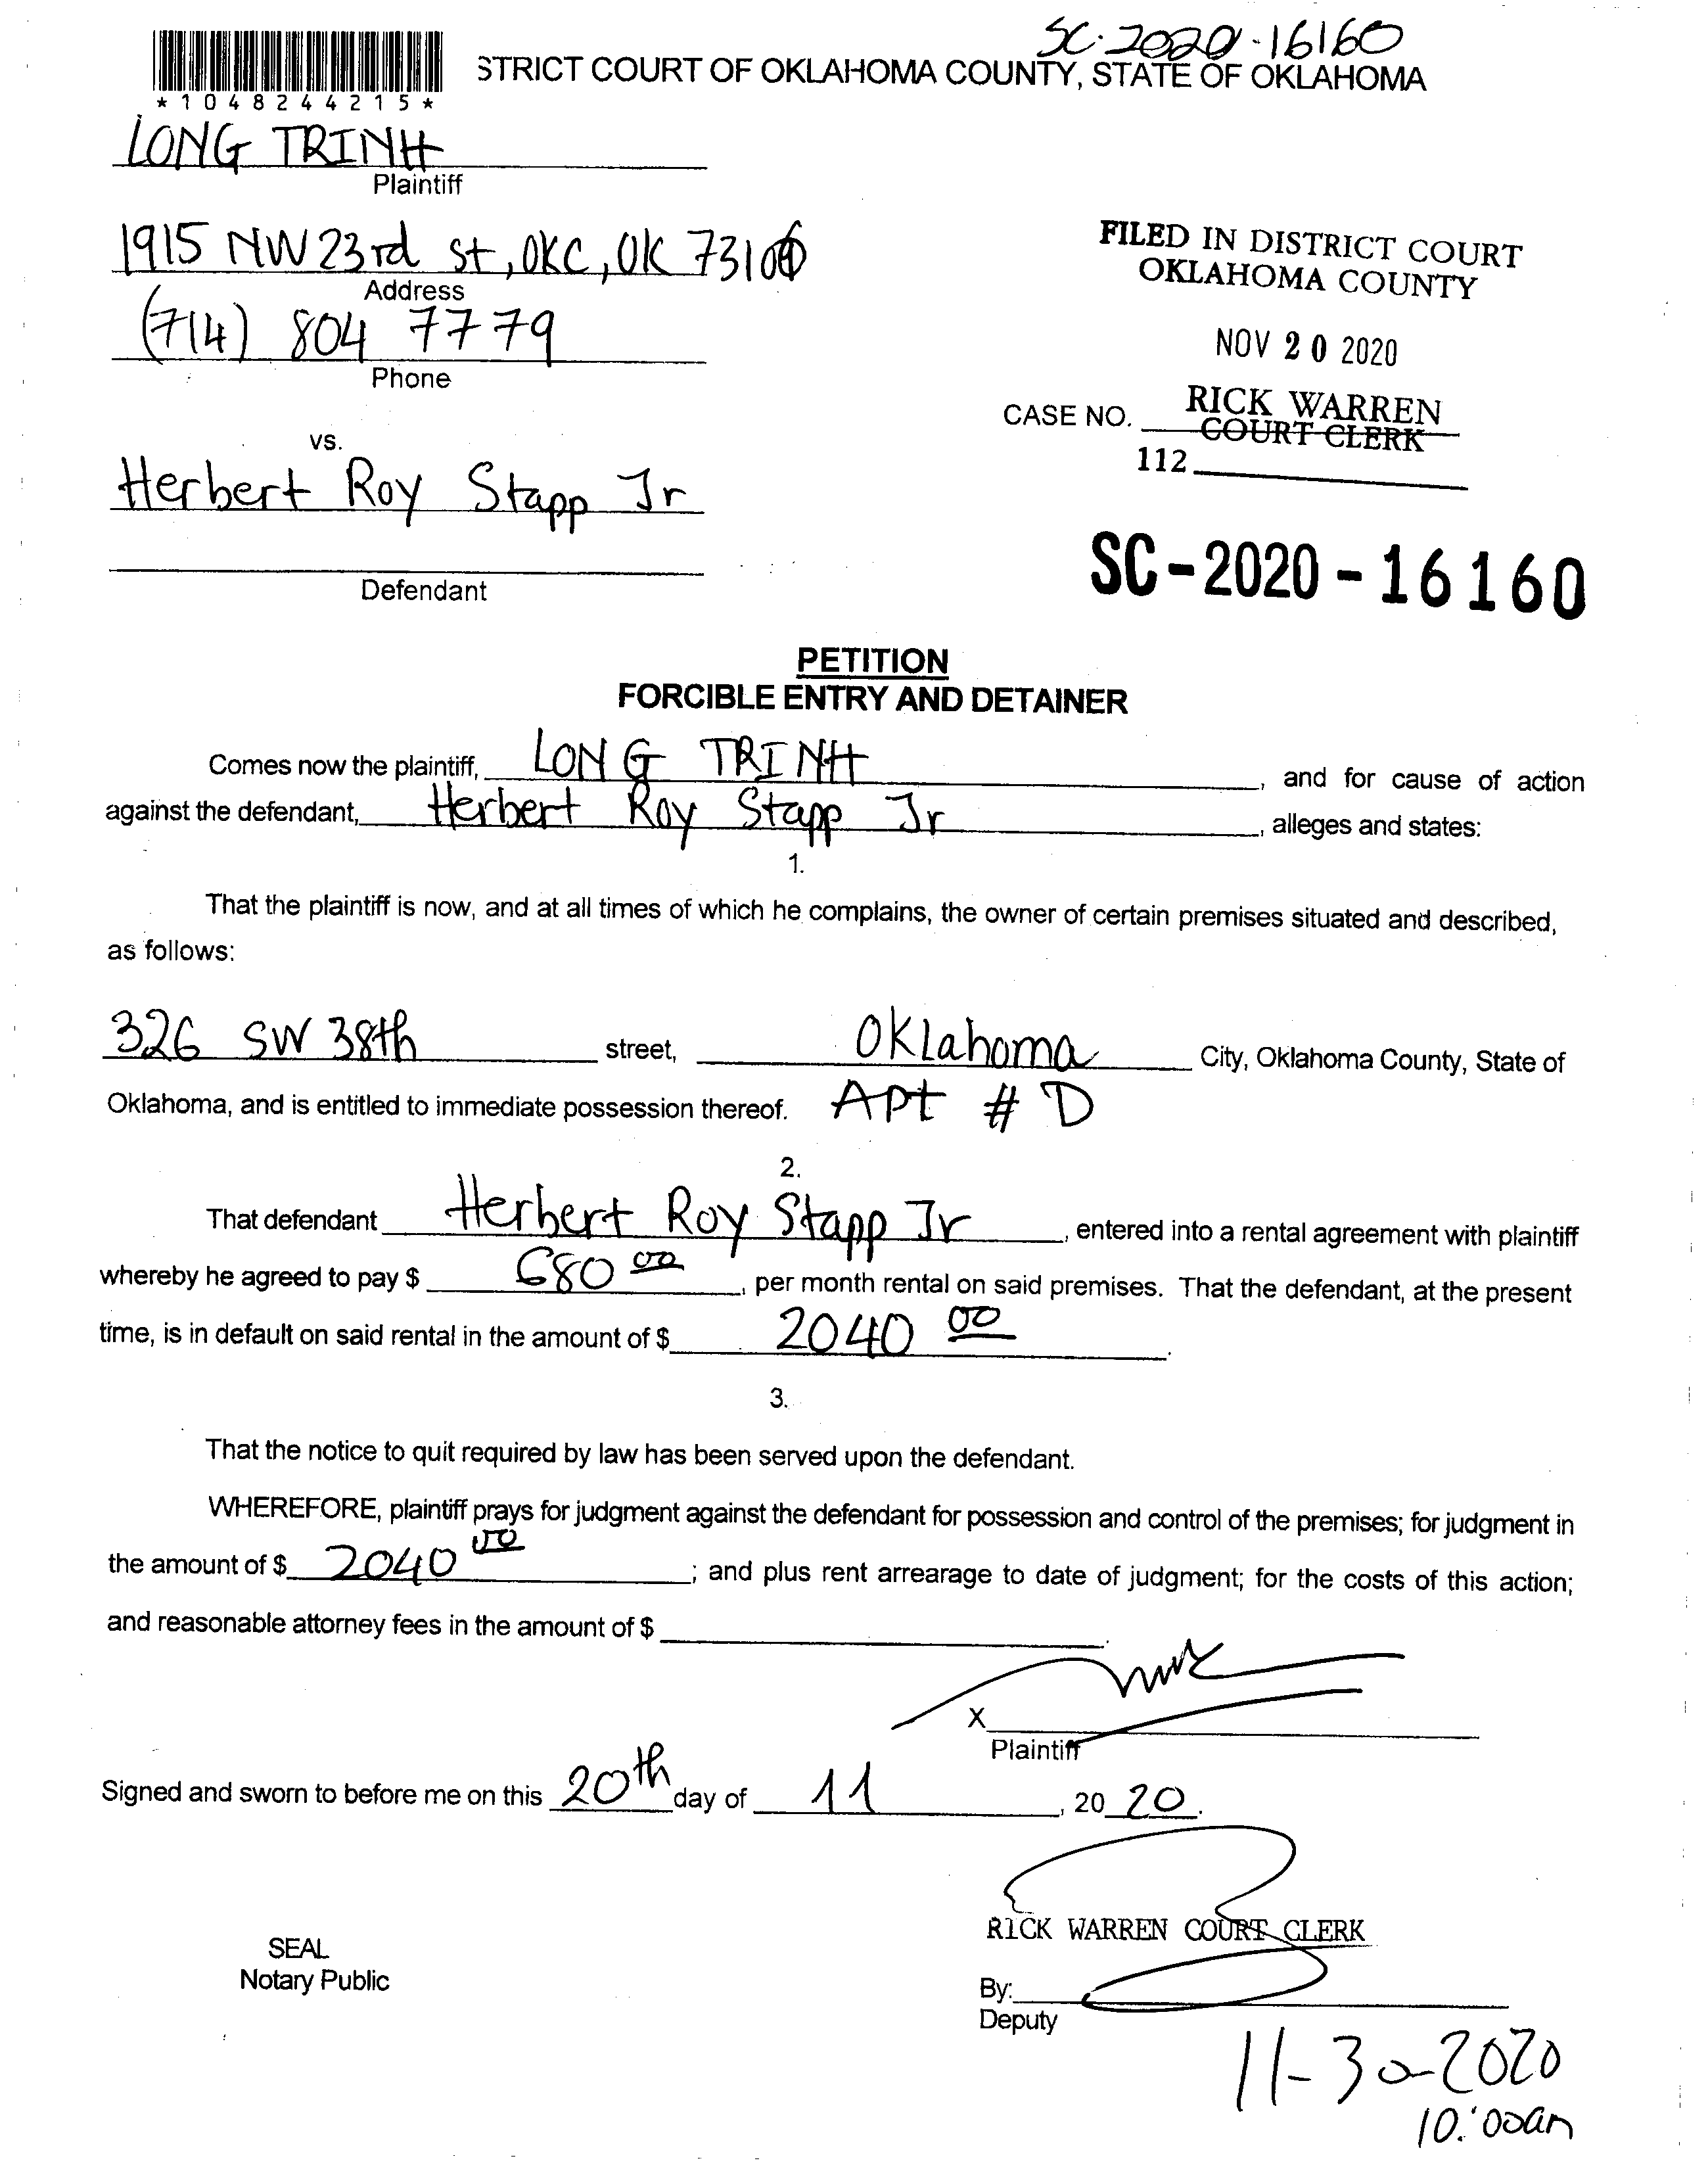 SC-2020-16160
STRICT COURT OF OKLAHOMA COUNTY, STATE OF OKLAHOMA
*1048244215*
LONG TRINH
Plaintiff
1915 NW 23rd st, OKC, OK 7310
Address
(714) 804 7779
Phone
FILED IN DISTRICT COURT
OKLAHOMA COUNTY
NOV 20 2020
RICK WARREN
CASE NO.
COURT CLERK
112
vs.
Herbert Roy Stapp Jr
Defendant
SC-2020-16160
PETITION
FORCIBLE ENTRY AND DETAINER
Comes now the plaintiff, LONG TRINH, and for cause of action
against the defendant, Herbert Roy Stapp Jr, alleges and states:
1.
That the plaintiff is now, and at all times of which he complains, the owner of certain premises situated and described,
as follows:
326 SW 38th street, Oklahoma City, Oklahoma County, State of
Oklahoma, and is entitled to immediate possession thereof. Apt # D
2.
That defendant Herbert Roy Stapp Jr, entered into a rental agreement with plaintiff
whereby he agreed to pay $ 680 00, per month rental on said premises. That the defendant, at the present
time, is in default on said rental in the amount of $ 2040 00.
3.
That the notice to quit required by law has been served upon the defendant.
WHEREFORE, plaintiff prays for judgment against the defendant for possession and control of the premises; for judgment in
the amount of $ 2040 00; and plus rent arrearage to date of judgment; for the costs of this action;
and reasonable attorney fees in the amount of $
X
Plaintiff
Signed and sworn to before me on this 20th day of 11, 20 20.
RICK WARREN COURT CLERK
SEAL
Notary Public
By:
Deputy
11-30-2020
10:00am